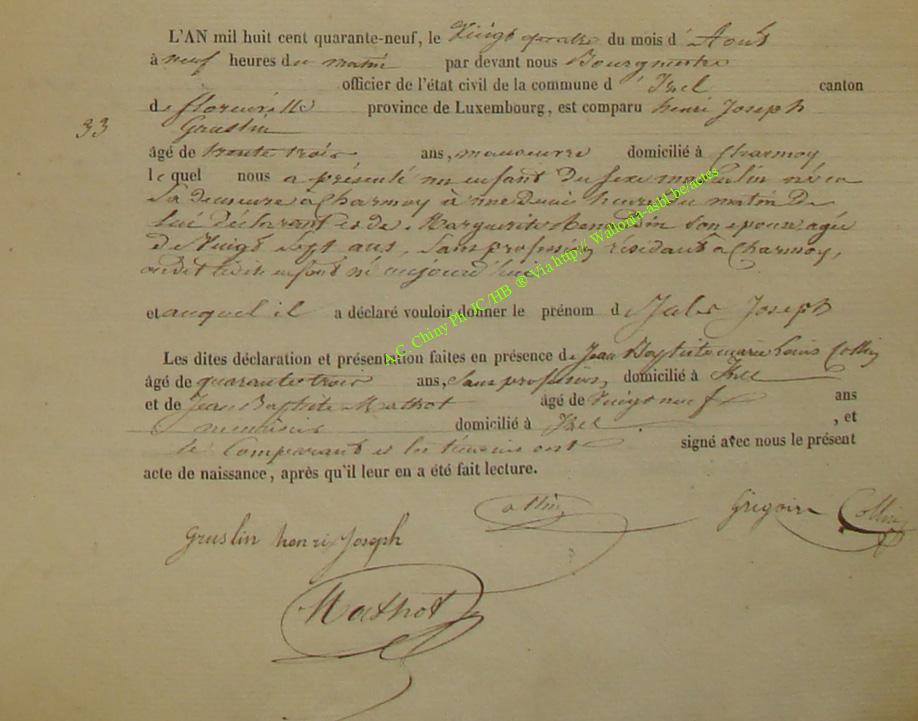 L'AN mil huit cent quarante-neuf, le Vingt quatre du mois d'Août
à neuf heures du matin par devant nous Bourgmestre
officier de l'état civil de la commune d'Izel canton
de florenville province de Luxembourg, est comparu henri Joseph
33
Gruslin
âgé de trente trois ans, manoeuvre domicilié à Charmoy
lequel nous a présenté un enfant du sexe masculin né en
sa demeure à Charmoy à une demie heure du matin de
lui déclarant et de Marguerite son épouse agée
de Vingt sept ans, sans profession, résidant à Charmoy,
enfant né aujourd'hui
et auquel il a déclaré vouloir donner le prénom de Jules Joseph
Les dites déclaration et présentation faites en présence de Jean Baptiste marie Louis Collin
âgé de quarante trois ans, sans profession, domicilié à Izel
et de Jean Baptiste Mathot âgé de Vingt neuf ans
menuisier domicilié à Izel, et
le Comparant et les témoins ont signé avec nous le présent
acte de naissance, après qu'il leur en a été fait lecture.
Collin
Grégoire Collin
gruslin henri Joseph
Mathot
A.G. Chiny Ph JC/HB ® Via http:// Wallonia-asbl.be/actes